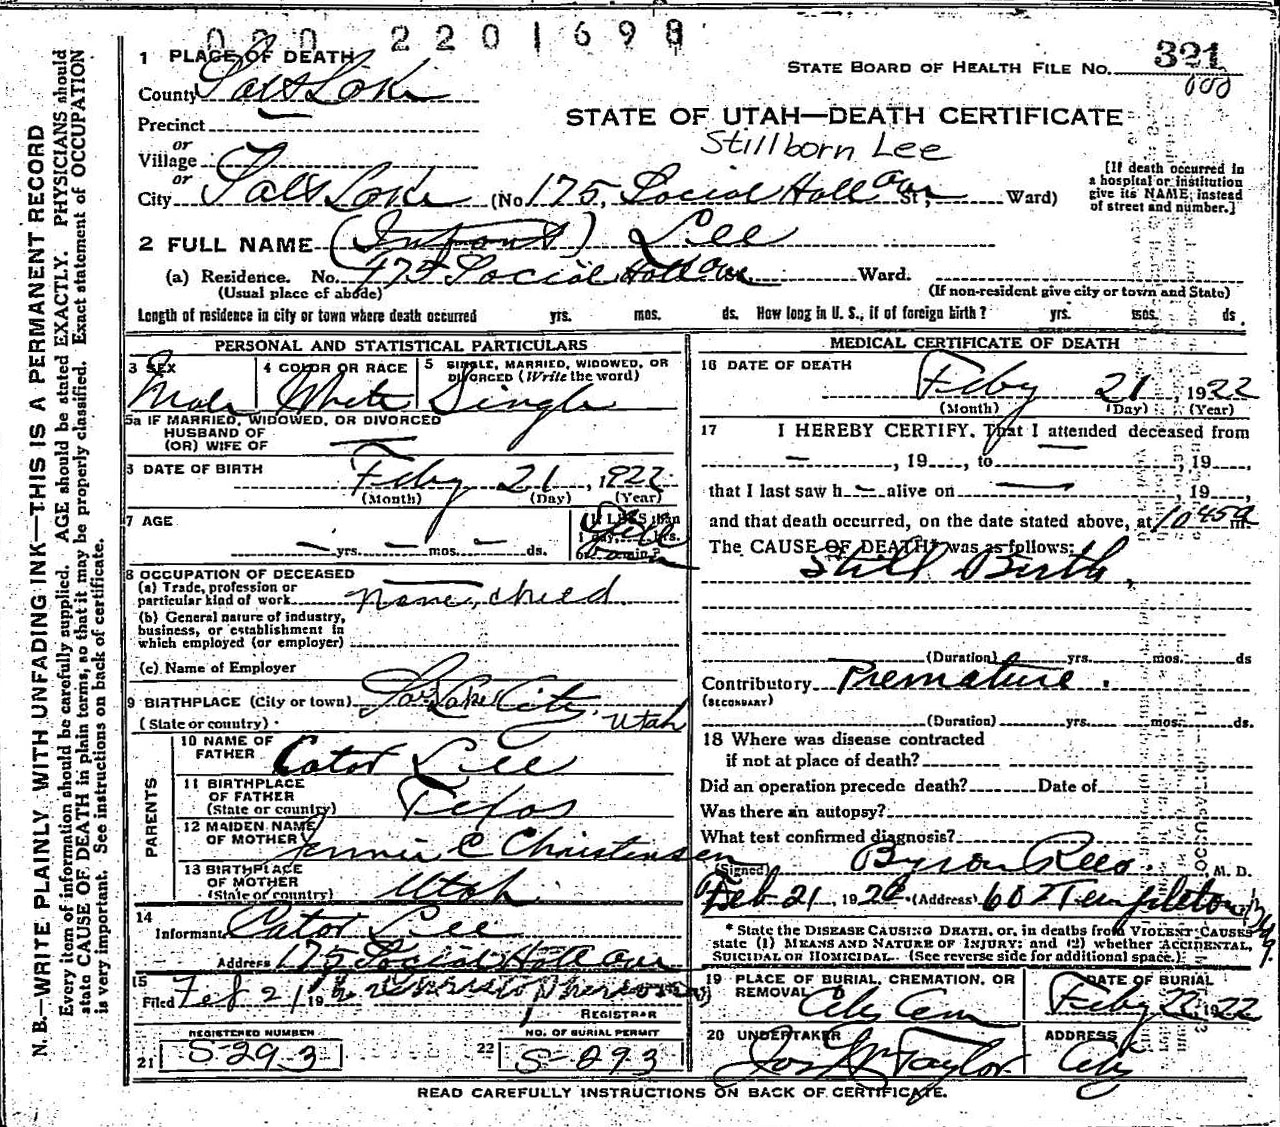 0 0 0 2 2 0 1 6 9 8
321
STATE BOARD OF HEALTH FILE NO.
STATE OF UTAH—DEATH CERTIFICATE
Stillborn Lee
1 PLACE OF DEATH
County Salt Lake
Precinct
or
Village
or
City Salt Lake (No 175, Social Hall Ave St., Ward)
[If death occurred in
a hospital or institution
give its NAME, instead
of street and number.]
2 FULL NAME (Infant) Lee
(a) Residence. No. 175 Social Hall Ave Ward.
(Usual place of abode)
(If non-resident give city or town and State)
Length of residence in city or town where death occurred yrs. mos. ds. How long in U. S., if of foreign birth? yrs. mos. ds.
PERSONAL AND STATISTICAL PARTICULARS
3 SEX
Male
4 COLOR OR RACE
White
5 SINGLE, MARRIED, WIDOWED, OR
DIVORCED (Write the word)
Single
5a IF MARRIED, WIDOWED, OR DIVORCED
HUSBAND OF
(OR) WIFE OF
6 DATE OF BIRTH
Feby 21, 1922
(Month) (Day) (Year)
7 AGE
— yrs. — mos. — ds.
If LESS than
1 day, hrs.
or min?
Still
born
8 OCCUPATION OF DECEASED
(a) Trade, profession or
particular kind of work none, child
(b) General nature of industry,
business, or establishment in
which employed (or employer)
(c) Name of Employer
9 BIRTHPLACE (City or town) Salt Lake City,
(State or country) Utah
PARENTS
10 NAME OF
FATHER Cator Lee
11 BIRTHPLACE
OF FATHER
(State or country) Texas
12 MAIDEN NAME
OF MOTHER Jennie C Christensen
13 BIRTHPLACE
OF MOTHER
(State or country) Utah
14
Informant Cator Lee
Address 175 Social Hall Ave
15
Filed Feb 21 19
REGISTRAR
REGISTERED NUMBER
21 S-293
NO. OF BURIAL PERMIT
22 S-293
MEDICAL CERTIFICATE OF DEATH
16 DATE OF DEATH
Feby 21, 1922
(Month) (Day) (Year)
17 I HEREBY CERTIFY, That I attended deceased from
—, 19, to —, 19,
that I last saw h — alive on —, 19,
and that death occurred, on the date stated above, at 10 45 a m.
The CAUSE OF DEATH* was as follows:
Still Birth,
(Duration) yrs. mos. ds
Contributory Premature.
(SECONDARY)
(Duration) yrs. mos. ds.
18 Where was disease contracted
if not at place of death?
Did an operation precede death? Date of
Was there an autopsy?
What test confirmed diagnosis?
(Signed) Byron Rees. M. D.
Feb 21, 1922 (Address) 607 Templeton Bldg.
* State the DISEASE CAUSING DEATH, or, in deaths from VIOLENT CAUSES
state (1) MEANS AND NATURE OF INJURY; and (2) whether ACCIDENTAL,
SUICIDAL OR HOMICIDAL. (See reverse side for additional space.)
19 PLACE OF BURIAL, CREMATION, OR
REMOVAL
City Cem
DATE OF BURIAL
Feby 22, 1922
20 UNDERTAKER
Jos Wm Taylor
ADDRESS
City
READ CAREFULLY INSTRUCTIONS ON BACK OF CERTIFICATE.
N. B.—WRITE PLAINLY, WITH UNFADING INK—THIS IS A PERMANENT RECORD
Every item of information should be carefully supplied. AGE should be stated EXACTLY. PHYSICIANS should
state CAUSE OF DEATH in plain terms, so that it may be properly classified. Exact statement of OCCUPATION
is very important. See instructions on back of certificate.